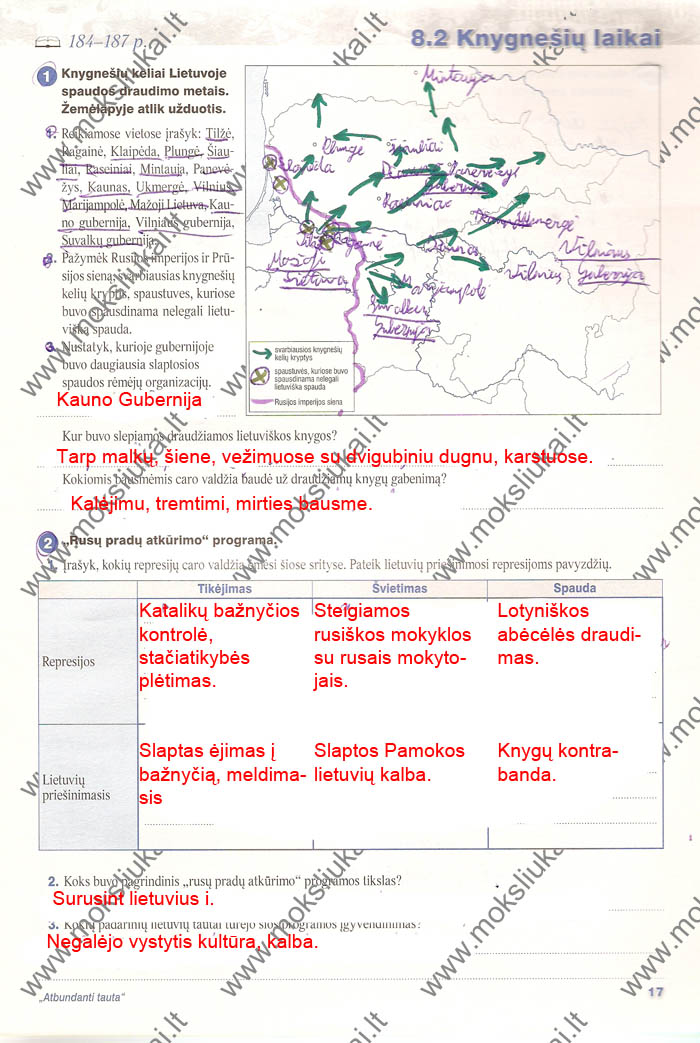 184–187 p.
8.2 Knygnešių laikai
1 Knygnešių keliai Lietuvoje
spaudos draudimo metais.
Žemėlapyje atlik užduotis.
1. Reikiamose vietose įrašyk: Tilžė,
Ragainė, Klaipėda, Plungė, Šiau-
liai, Raseiniai, Mintauja, Panevė-
žys, Kaunas, Ukmergė, Vilnius,
Marijampolė, Mažoji Lietuva, Kau-
no gubernija, Vilniaus gubernija,
Suvalkų gubernija.
2. Pažymėk Rusijos imperijos ir Prū-
sijos sieną, svarbiausias knygnešių
kelių kryptis, spaustuves, kuriose
buvo spausdinama nelegali lietu-
viška spauda.
3. Nustatyk, kurioje gubernijoje
buvo daugiausia slaptosios
spaudos rėmėjų organizacijų.
Kauno Gubernija
Mintauja
Plungė
Šiauliai
Panevėžys
gubernija
Raseiniai
Ukmergė
Ragainė
Kaunas
Mažoji
Lietuva
Vilnius
Vilniaus
gubernija
Marijampolė
Suvalkų
gubernija
svarbiausios knygnešių
kelių kryptys
spaustuvės, kuriose buvo
spausdinama nelegali
lietuviška spauda
Rusijos imperijos siena
Kur buvo slepiamos draudžiamos lietuviškos knygos?
Tarp malkų, šiene, vežimuose su dvigubiniu dugnu, karstuose.
Kokiomis bausmėmis caro valdžia baudė už draudžiamų knygų gabenimą?
Kalėjimu, tremtimi, mirties bausme.
2 „Rusų pradų atkūrimo“ programa.
1. Įrašyk, kokių represijų caro valdžia ėmėsi šiose srityse. Pateik lietuvių priešinimosi represijoms pavyzdžių.
Tikėjimas Švietimas Spauda
Represijos
Katalikų bažnyčios
kontrolė,
stačiatikybės
plėtimas.
Steigiamos
rusiškos mokyklos
su rusais mokyto-
jais.
Lotyniškos
abėcėlės draudi-
mas.
Lietuvių
priešinimasis
Slaptas ėjimas į
bažnyčią, meldima-
sis
Slaptos Pamokos
lietuvių kalba.
Knygų kontra-
banda.
2. Koks buvo pagrindinis „rusų pradų atkūrimo“ programos tikslas?
Surusint lietuvius i.
3. Kokių padarinių lietuvių tautai turėjo šios programos įgyvendinimas?
Negalėjo vystytis kultūra, kalba.
„Atbundanti tauta“
17
www.moksliukai.lt